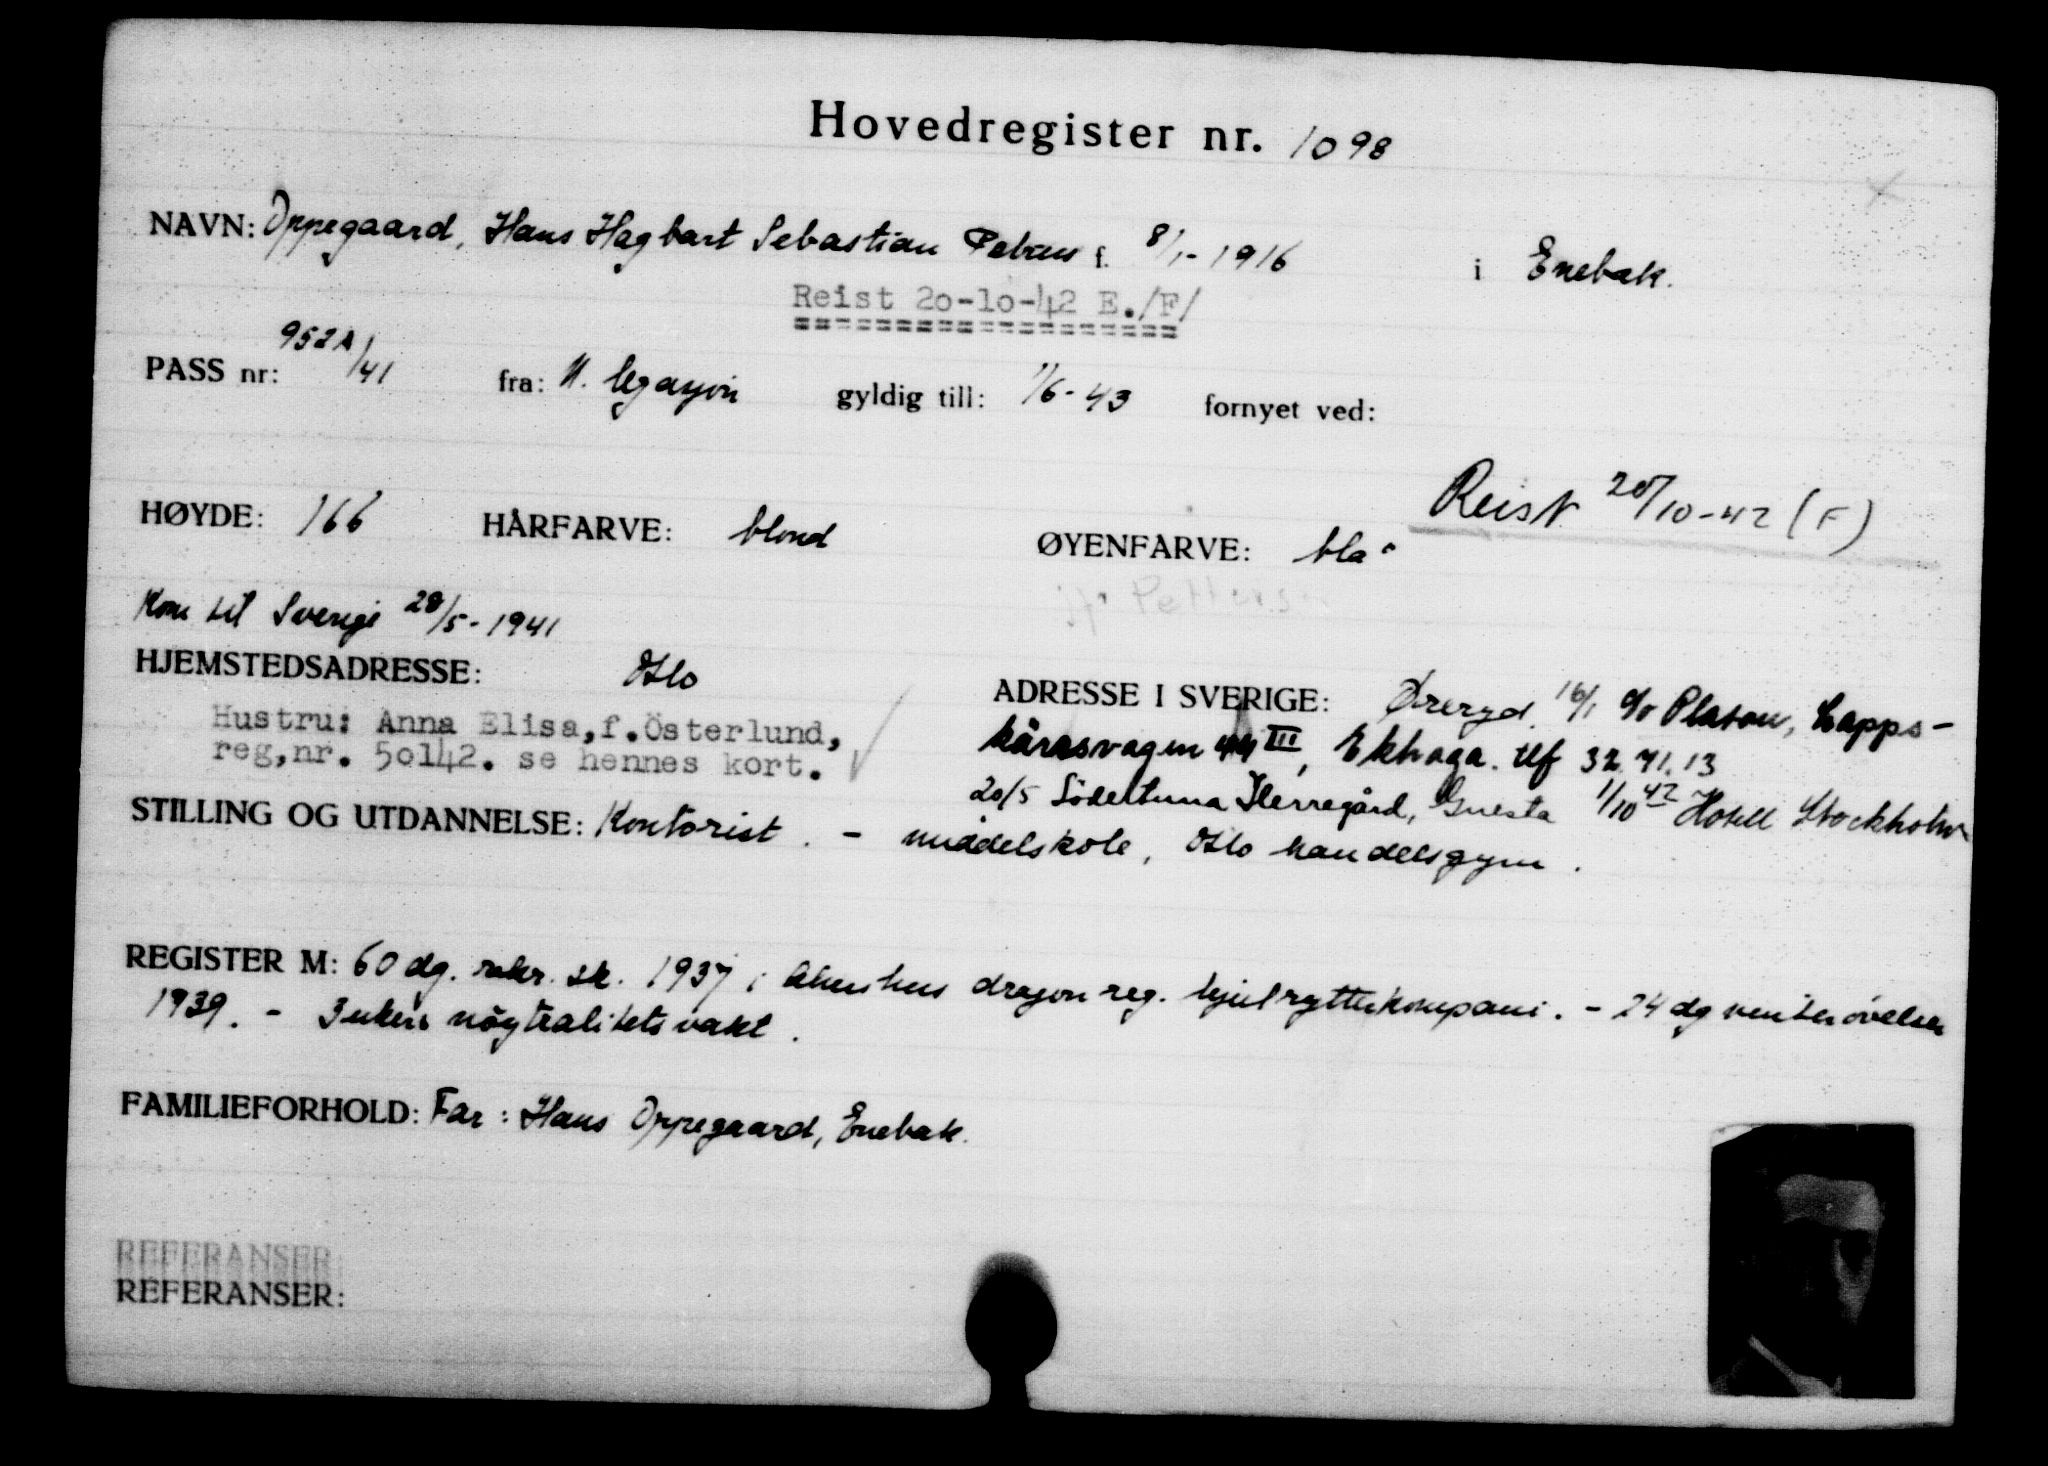 Hovedregister nr. 1098
NAVN: Oppegaard, Hans Hagbart Sebastian Petrus f. 8/1-1916 i Enebak.
Reist 20-10-42 E./F/
PASS nr: 952A/41 fra: N. legasjon gyldig till: 1/6-43 fornyet ved:
Reist 20/10-42 (F)
HØYDE: 166 HÅRFARVE: blond ØYENFARVE: blå
Kom til Sverige 28/5-1941
HJEMSTEDSADRESSE: Oslo
ADRESSE I SVERIGE: Øreryd. 16/1 c/o Platou, Lapps-
kärrsvagen 44 III, Ekhaga. tlf 32.71.13
20/5 Södertuna Herregård, Gnesta 1/10 42 Hotell Stockholm
Hustru: Anna Elisa, f. Österlund,
reg,nr. 50142. se hennes kort.
STILLING OG UTDANNELSE: Kontorist. - middelskole, Oslo handelsgym.
REGISTER M: 60 dg. rekr. sk. 1937 i Akershus dragon reg. hjulrytterkompani. - 24 dg vinterøvelser
1939. - 3 uker nøytralitetsvakt.
FAMILIEFORHOLD: Far: Hans Oppegaard, Enebak.
REFERANSER:
REFERANSER: